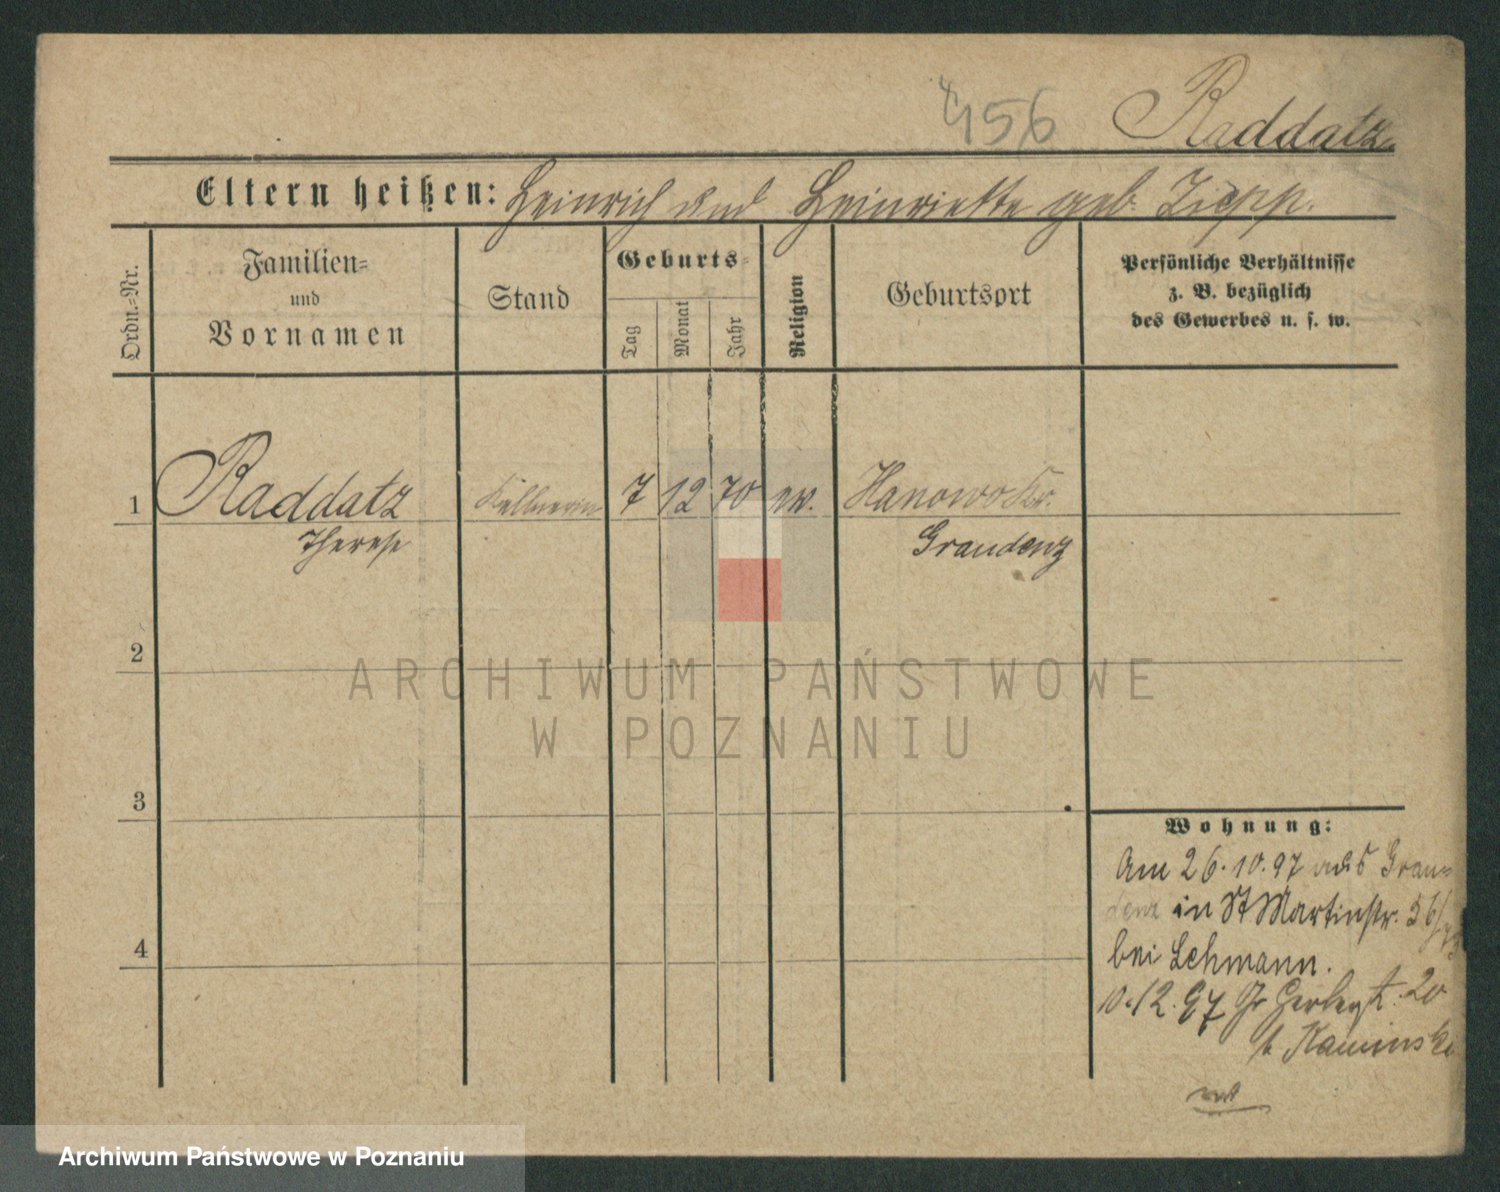 456 Raddatz.
Eltern heißen: Heinrich und Henriette geb. Ziepp.
Ordn.=Nr.
Familien=
und
Vornamen
Stand
Geburts=
Tag
Monat
Jahr
Religion
Geburtsort
Persönliche Verhältnisse
z. B. bezüglich
des Gewerbes u. s. w.
1 Raddatz Kellnerin 7 12 70 ev. Hanowo Kr.
Therese Graudenz
2
3
4
Wohnung:
Am 26.10.97 aus Grau=
denz in St Martinstr. 36/
bei Lehmann.
10.12.97 Gr Gerberst. 20
b Kaminski
ARCHIWUM PAŃSTWOWE
W POZNANIU
Archiwum Państwowe w Poznaniu